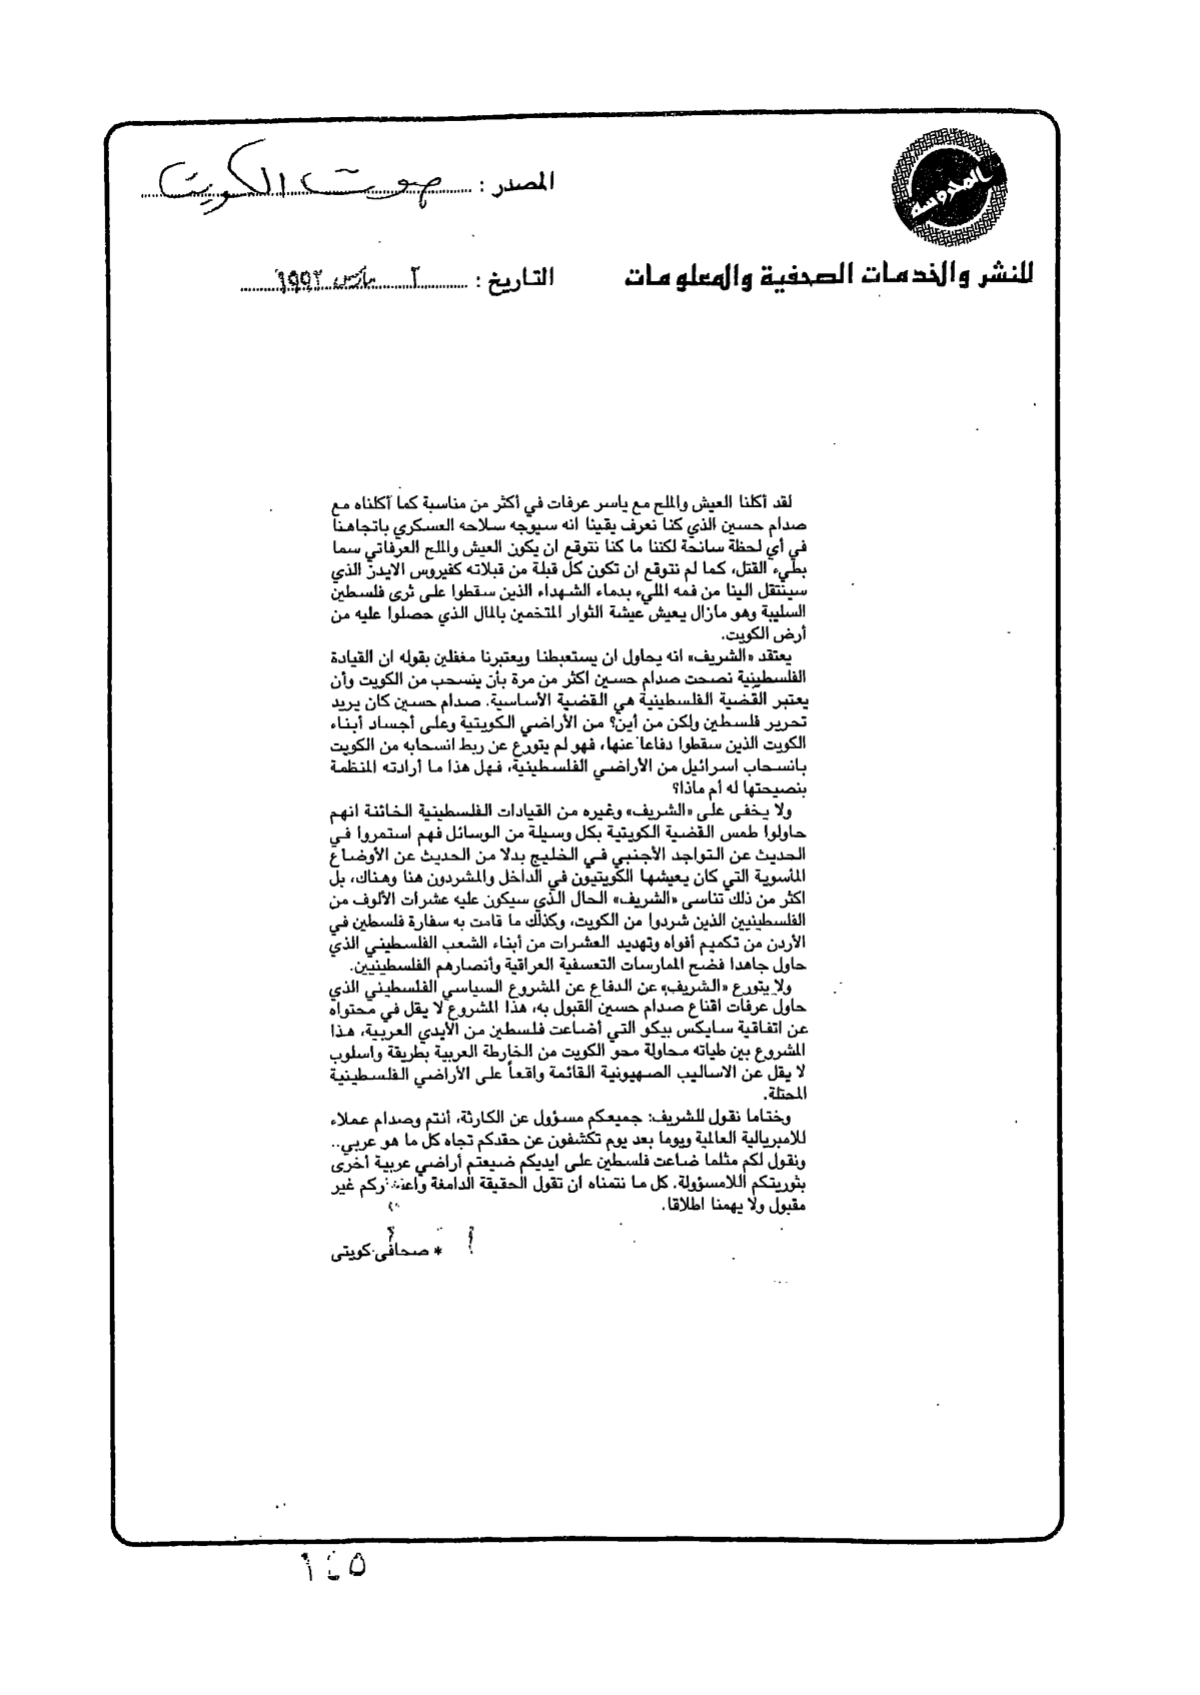 المحروسة
المصدر : صوت الكويت
للنشر والخدمات الصحفية والمعلومات
التاريخ : ٢ مارس ١٩٩٢
لقد أكلنا العيش والملح مع ياسر عرفات في أكثر من مناسبة كما أكلناه مع
صدام حسين الذي كنا نعرف يقينا انه سيوجه سلاحه العسكري باتجاهنا
في أي لحظة سانحة لكننا ما كنا نتوقع ان يكون العيش والملح العرفاتي سما
بطيء القتل، كما لم نتوقع ان تكون كل قبلة من قبلاته كفيروس الايدز الذي
سينتقل الينا من فمه المليء بدماء الشهداء الذين سقطوا على ثرى فلسطين
السليبة وهو مازال يعيش عيشة الثوار المتخمين بالمال الذي حصلوا عليه من
أرض الكويت.
يعتقد «الشريف» انه يحاول ان يستعبطنا ويعتبرنا مغفلين بقوله ان القيادة
الفلسطينية نصحت صدام حسين اكثر من مرة بأن ينسحب من الكويت وأن
يعتبر القضية الفلسطينية هي القضية الأساسية. صدام حسين كان يريد
تحرير فلسطين ولكن من أين؟ من الأراضي الكويتية وعلى أجساد أبناء
الكويت الذين سقطوا دفاعا عنها، فهو لم يتورع عن ربط انسحابه من الكويت
بانسحاب اسرائيل من الأراضي الفلسطينية، فهل هذا ما أرادته المنظمة
بنصيحتها له أم ماذا؟
ولا يخفى على «الشريف» وغيره من القيادات الفلسطينية الخائنة انهم
حاولوا طمس القضية الكويتية بكل وسيلة من الوسائل فهم استمروا في
الحديث عن التواجد الأجنبي في الخليج بدلا من الحديث عن الأوضاع
المأسوية التي كان يعيشها الكويتيون في الداخل والمشردون هنا وهناك، بل
اكثر من ذلك تناسى «الشريف» الحال الذي سيكون عليه عشرات الألوف من
الفلسطينيين الذين شردوا من الكويت، وكذلك ما قامت به سفارة فلسطين في
الأردن من تكميم أفواه وتهديد العشرات من أبناء الشعب الفلسطيني الذي
حاول جاهدا فضح الممارسات التعسفية العراقية وأنصارهم الفلسطينيين.
ولا يتورع «الشريف» عن الدفاع عن المشروع السياسي الفلسطيني الذي
حاول عرفات اقناع صدام حسين القبول به، هذا المشروع لا يقل في محتواه
عن اتفاقية سايكس بيكو التي أضاعت فلسطين من الأيدي العربية، هذا
المشروع بين طياته محاولة محو الكويت من الخارطة العربية بطريقة واسلوب
لا يقل عن الاساليب الصهيونية القائمة واقعاً على الأراضي الفلسطينية
المحتلة.
وختاما نقول للشريف: جميعكم مسؤول عن الكارثة، أنتم وصدام عملاء
للامبريالية العالمية ويوما بعد يوم تكشفون عن حقدكم تجاه كل ما هو عربي..
ونقول لكم مثلما ضاعت فلسطين على ايديكم ضيعتم أراضي عربية أخرى
بثوريتكم اللامسؤولة. كل ما نتمناه ان تقول الحقيقة الدامغة غير
مقبول ولا يهمنا اطلاقا.
* صحافي كويتي
١٤٥